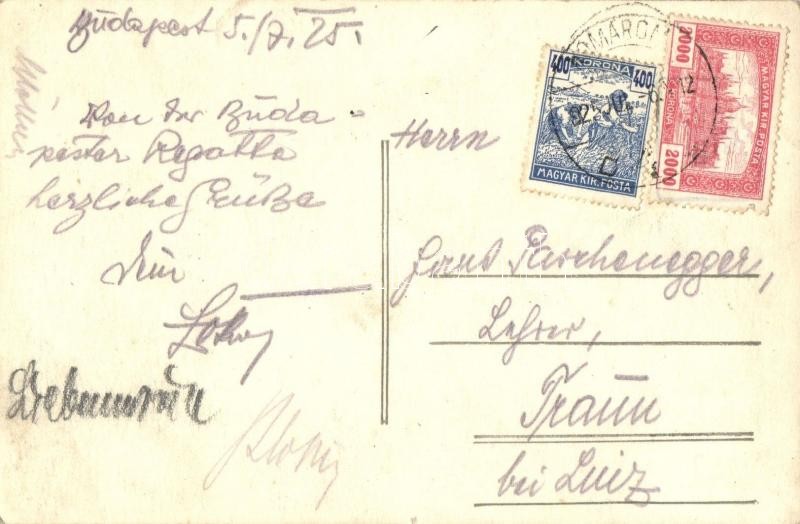 Budapest 5./7.25.
Von der Buda-
pester Regatta
herzliche Grüße
Dein
Herrn
Hans
Lehrer,
Traun
bei Linz
400 KORONA 400
MAGYAR KIR. POSTA
2000 MAGYAR KIR. POSTA
KORONA 2000
KOMÁROM